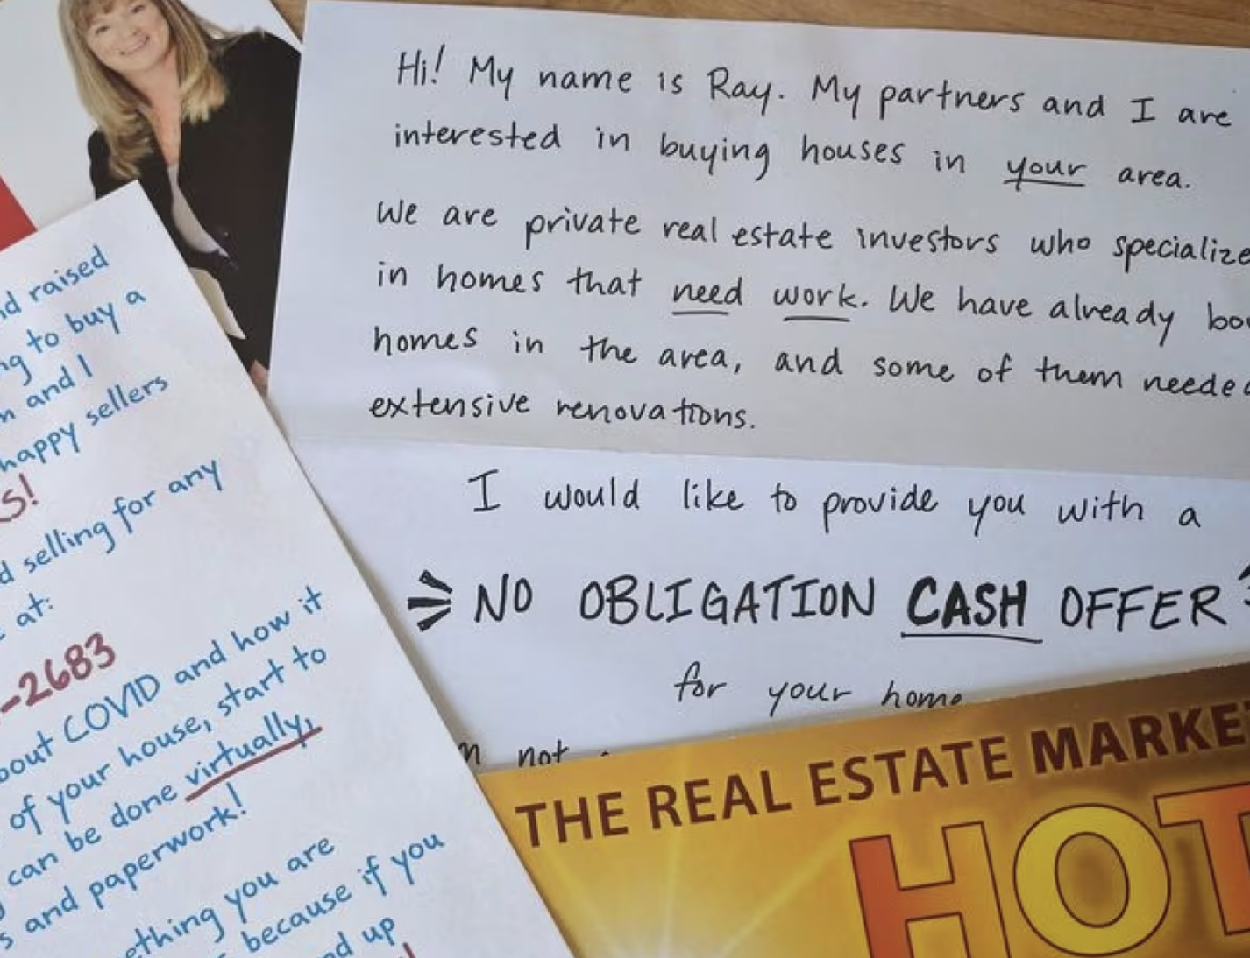 Hi! My name is Ray. My partners and I are
interested in buying houses in your area.
We are private real estate investors who specialize
in homes that need work. We have already
homes in the area, and some of them needed
extensive renovations.
I would like to provide you with a
NO OBLIGATION CASH OFFER
for your home
not
raised
to buy a
and I
happy sellers
selling for any
at:
-2683
COVID and how it
of your house, start to
can be done virtually,
and paperwork!
you are
because if you
up
THE REAL ESTATE
HOT